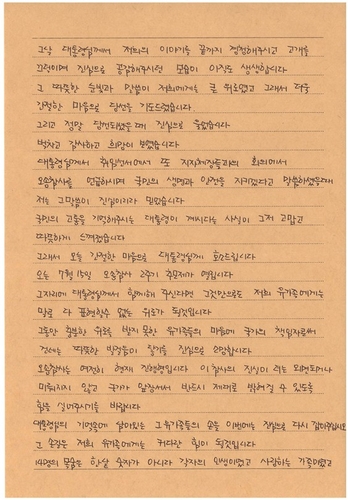 그날 대통령님께서 저희의 이야기를 끝까지 경청해주시고 고개를
끄덕이며 진심으로 공감해주시던 모습이 아직도 생생합니다
그 따뜻한 눈빛과 말씀이 저희에게는 큰 위로였고 그래서 더욱
간절한 마음으로 당선을 기도드렸습니다
그리고 정말 당선되셨을때 진심으로 울었습니다
벅차고 감사하고 희망이 보였습니다
대통령님께서 취임선서에서 또 지자체장들과의 회의에서
오송참사를 언급하시며 국민의 생명과 안전을 지키겠다고 말씀하셨을때
저는 그말씀이 진심이라 믿었습니다
국민의 고통을 기억해주시는 대통령이 계시다는 사실이 그저 고맙고
따뜻하게 느껴졌습니다
그래서 오늘 간절한 마음으로 대통령님께 호소드립니다
오는 7월 15일 오송참사 2주기 추모제가 열립니다
그자리에 대통령님께서 함께해 주신다면 그것만으로도 저희 유가족에게는
말로 다 표현할수 없는 위로가 될것입니다
그동안 충분한 위로 받지 못한 유가족들의 마음에 국가의 책임자로써
건네는 따뜻한 발걸음이 닿기를 진심으로 소망합니다
오송참사는 여전히 현재 진행형입니다 이 참사의 진실이 더는 외면되거나
미뤄지지 않고 국가가 앞장서서 반드시 제대로 밝혀질 수 있도록
힘을 실어주시기를 바랍니다
대통령님의 기억속에 남아있는 그 유가족들의 손을 이번에는 진심으로 다시 잡아주십시오
그 손길은 저희 유가족에게는 커다란 힘이 될것입니다
14명의 목숨은 한낱 숫자가 아니라 각자의 인생이였고 사랑하는 가족이였고